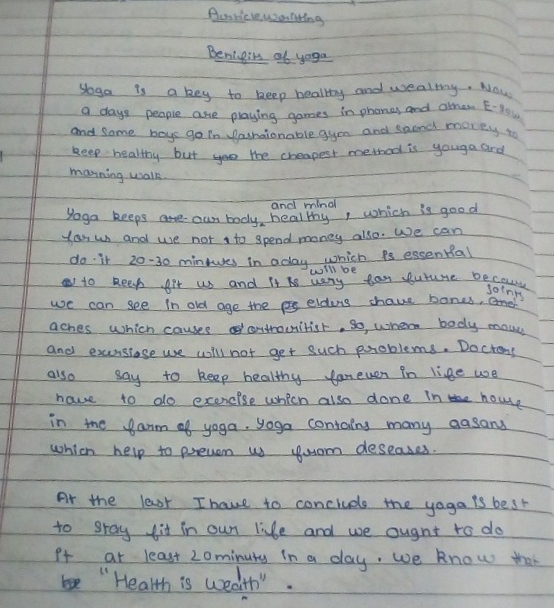 Articlewriting
Benifits of yoga
Yoga is a key to keep healthy and wealthy. Now
a days people are playing games in phones and other
and some boys go in fashaionable gym and spend money to
keep healthy but the cheapest method is youga and
morning walk.
Yoga keeps are our body and mind healthy, which is good
for us and we not to spend money also. We can
do it 20-30 mintues in aday which is essential
to keep fit us and it is will be very for future because
we can see in old age the elders have bones, joints
aches which causes . So, when body move
and exersiose we will not get such problems. Doctors
also say to keep healthy forever in life we
have to do exercise which also done in house
in the form of yoga. Yoga contains many aasans
which help to preven us from deseases.
At the last I have to conclude the yoga is best
to stay fit in our life and we ought to do
it at least 20 minutes in a day. We know that
"Health is wealth".